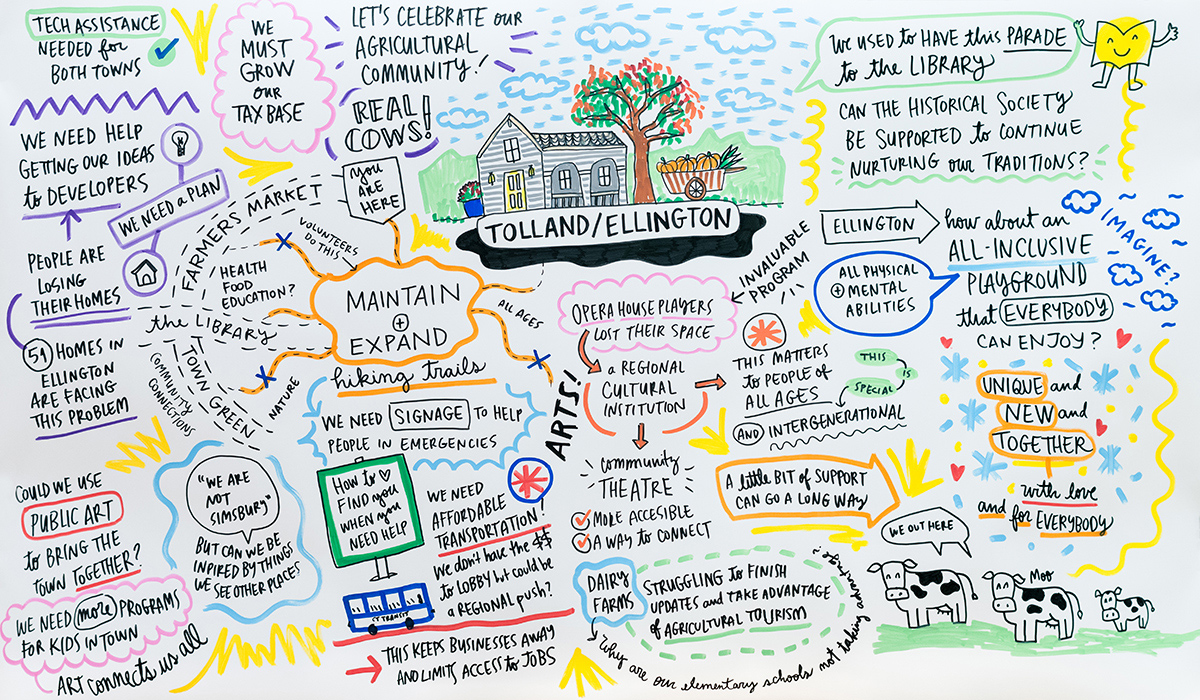 TECH ASSISTANCE
NEEDED for
BOTH TOWNS
WE
MUST
GROW
OUR
TAX BASE
LET'S CELEBRATE OUR
AGRICULTURAL
COMMUNITY!
REAL
COWS!
YOU
ARE
HERE
TOLLAND/ELLINGTON
WE USED to HAVE this PARADE
to the LIBRARY
CAN THE HISTORICAL SOCIETY
BE SUPPORTED to CONTINUE
NURTURING OUR TRADITIONS?
WE NEED HELP
GETTING OUR IDEAS
to DEVELOPERS
WE NEED a PLAN
PEOPLE ARE
LOSING
THEIR HOMES
59 HOMES IN
ELLINGTON
ARE FACING
THIS PROBLEM
FARMERS MARKET
HEALTH
FOOD
EDUCATION?
the LIBRARY
TOWN GREEN
COMMUNITY
CONNECTIONS
VOLUNTEERS
DO THIS
MAINTAIN
+
EXPAND
hiking trails
ALL AGES
NATURE
WE NEED SIGNAGE TO HELP
PEOPLE IN EMERGENCIES
How to
FIND you
WHEN you
NEED HELP
ARTS!
OPERA HOUSE PLAYERS
LOST THEIR SPACE
INVALUABLE
PROGRAM
a REGIONAL
CULTURAL
INSTITUTION
THIS MATTERS
to PEOPLE OF
ALL AGES
AND INTERGENERATIONAL
THIS
IS
SPECIAL
COMMUNITY
THEATRE
MORE ACCESIBLE
A WAY to CONNECT
ELLINGTON
how about an
ALL-INCLUSIVE
PLAYGROUND
that EVERYBODY
CAN ENJOY?
IMAGINE?
ALL PHYSICAL
+ MENTAL
ABILITIES
UNIQUE and
NEW and
TOGETHER
with love
and for EVERYBODY
A little BIT of SUPPORT
CAN GO A LONG WAY
COULD WE USE
PUBLIC ART
to BRING THE
TOWN TOGETHER?
WE NEED more PROGRAMS
FOR KIDS IN TOWN
ART connects us all
"WE ARE
NOT
SIMSBURY"
BUT CAN WE BE
INPIRED BY THINGS
WE SEE OTHER PLACES
WE NEED
AFFORDABLE
TRANSPORTATION!
WE DON'T HAVE the $$
to LOBBY but COULD BE
a REGIONAL PUSH?
CT TRANSIT
THIS KEEPS BUSINESSES AWAY
AND LIMITS ACCESS to JOBS
DAIRY
FARMS
STRUGGLING to FINISH
UPDATES and TAKE ADVANTAGE
of AGRICULTURAL TOURISM
Why are our elementary schools not taking advantage?
WE OUT HERE
MOO